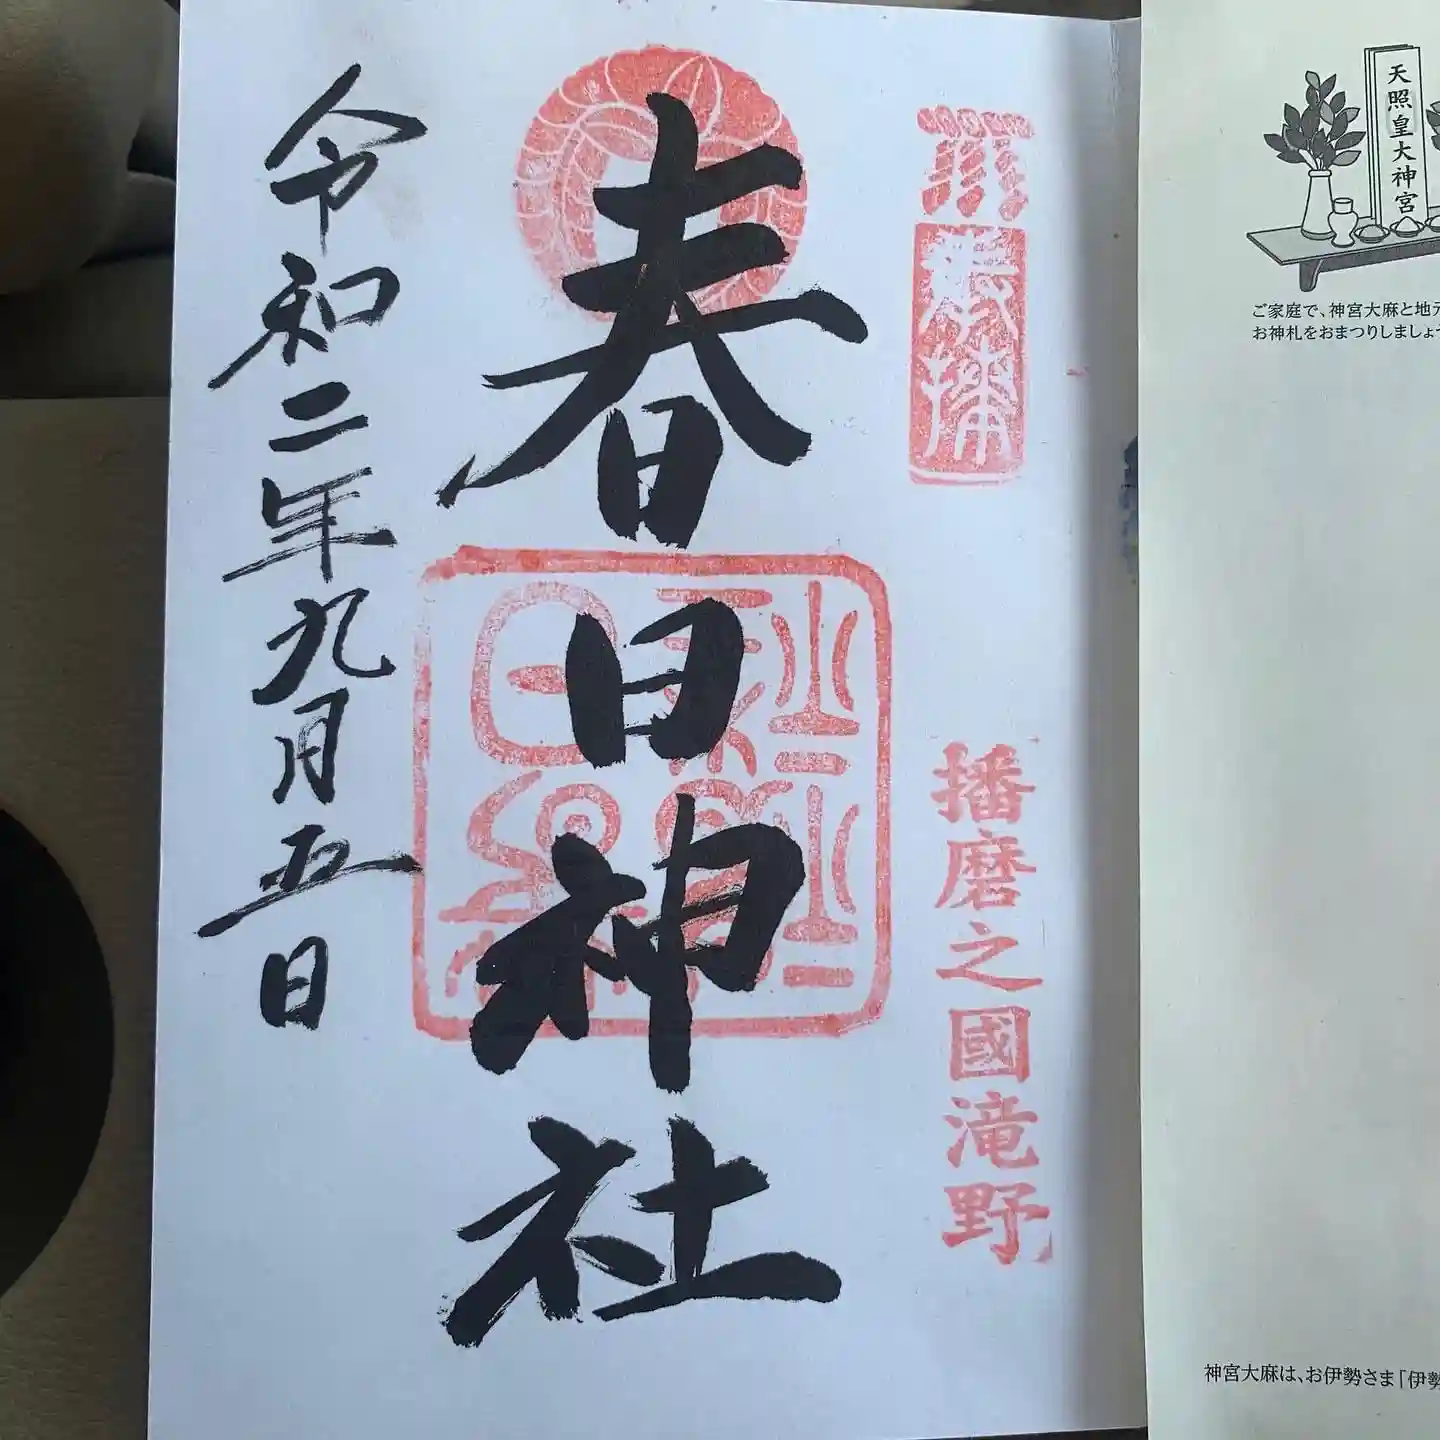 天照皇大神宮
ご家庭で、神宮大麻と地元
お神札をおまつりしましょう
神宮大麻は、お伊勢さま「伊勢
奉拝
播磨之國滝野
春日神社
令和二年九月五日